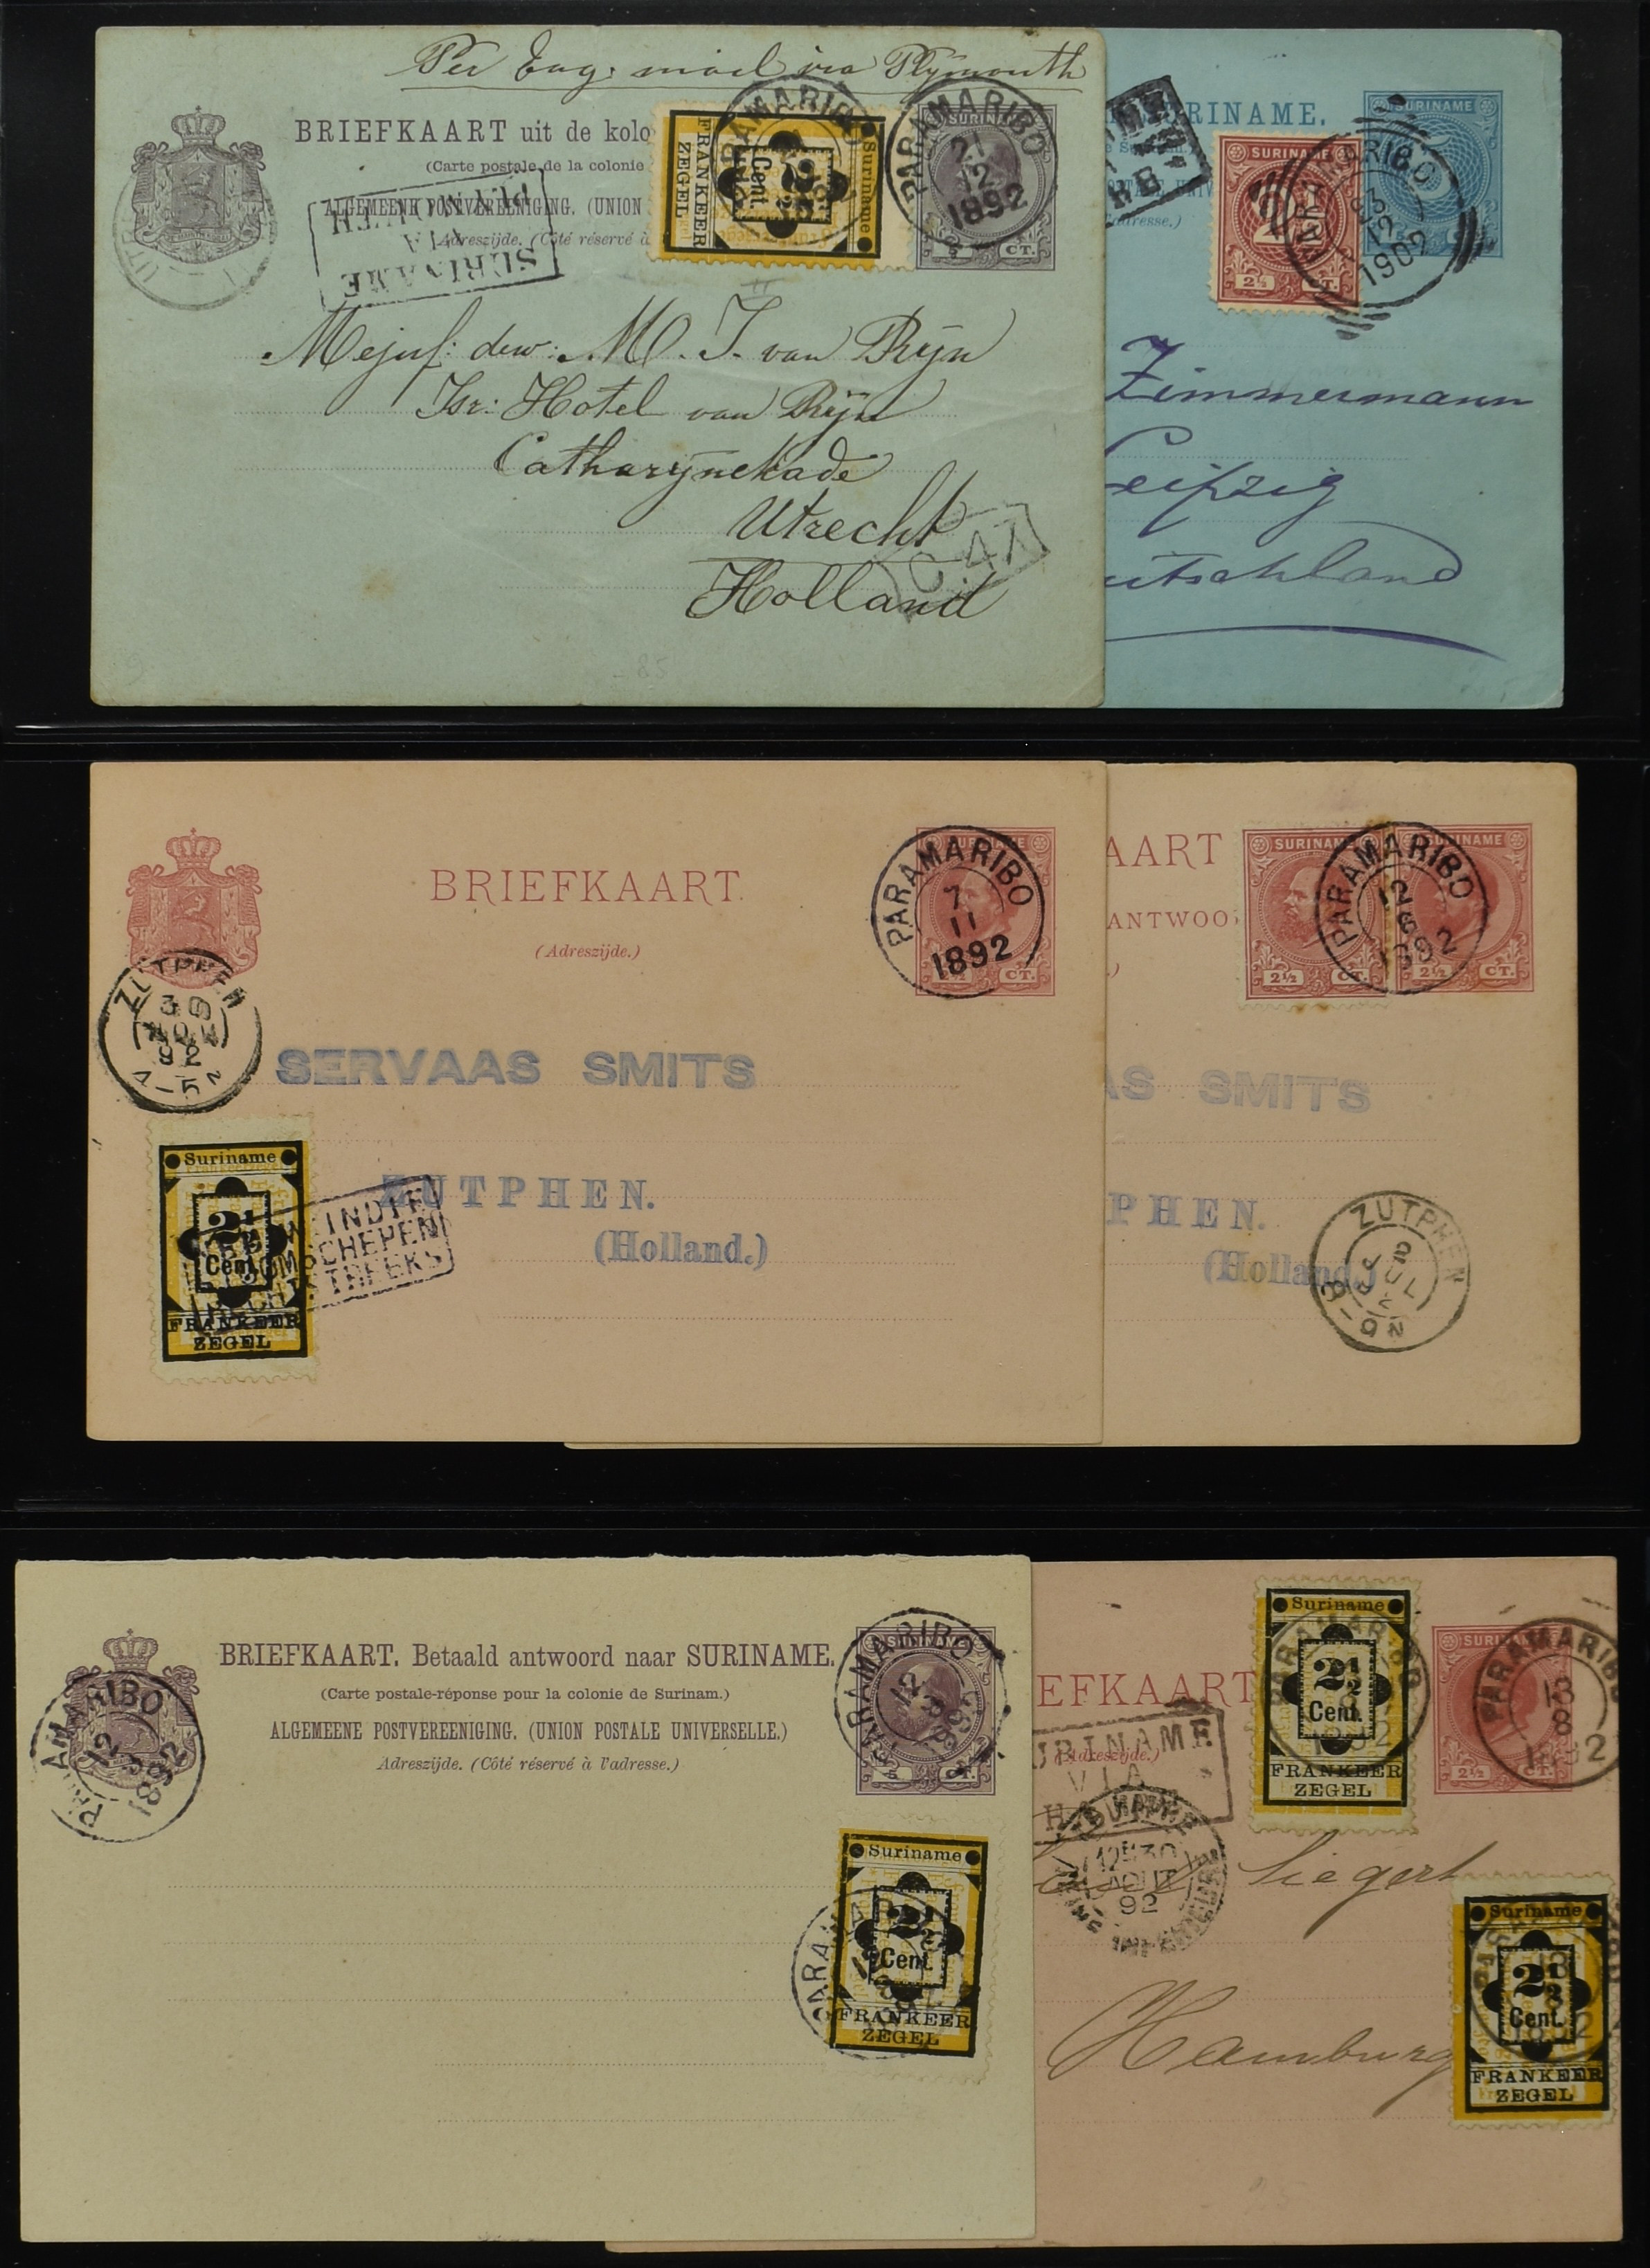 Per Eng: mail via Plymouth
BRIEFKAART uit de kolo
(Carte postale de la colonie
ALGEMEENE POSTVEREENIGING. (UNION
Adreszijde. (Côté réservé à
SURINAME
VIA
PLYMOUTH
Suriname
2½
Cent.
FRANKEER
ZEGEL
SURINAME
CT.
PARAMARIBO
PARAMARIBO
21
12
1892
Mejuf: dew: M. J. van Rijn
Isr: Hotel van Rijn
Catharijnekade
Utrecht
Holland
C 47
85
SURINAME.
SURINAME
2½ CT.
SURINAME
PARAMARIBO
12
1902
Zimmermann
Leipzig
utschland
BRIEFKAART.
(Adreszijde.)
SURINAME
CT.
PARAMARIBO
7
11
1892
ZUTPHEN
30
NOV
92
4-5 N
SERVAAS SMITS
ZUTPHEN.
(Holland.)
Suriname
2½
Cent.
FRANKEER
ZEGEL
INDIE
STOOMSCHEPEN
RECHTSTREEKS
AART
ANTWOO
SURINAME
2½ CT.
SURINAME
2½ CT.
PARAMARIBO
12
6
1892
AS SMITS
PHEN.
(Holland.)
ZUTPHEN
2
JUL
8-9 N
BRIEFKAART. Betaald antwoord naar SURINAME.
(Carte postale-réponse pour la colonie de Surinam.)
ALGEMEENE POSTVEREENIGING. (UNION POSTALE UNIVERSELLE.)
Adreszijde. (Côté réservé à l'adresse.)
PARAMARIBO
12
1892
PARAMARIBO
12
CT.
Suriname
2½
Cent.
FRANKEER
ZEGEL
PARAMARIBO
EFKAART
(Adreszijde.)
SURINAME
VIA
Suriname
2½
Cent.
FRANKEER
ZEGEL
SURINAME
2½ CT.
PARAMARIBO
13
8
1892
30
AOUT
92
Siegert
Hamburg
Suriname
2½
Cent.
FRANKEER
ZEGEL